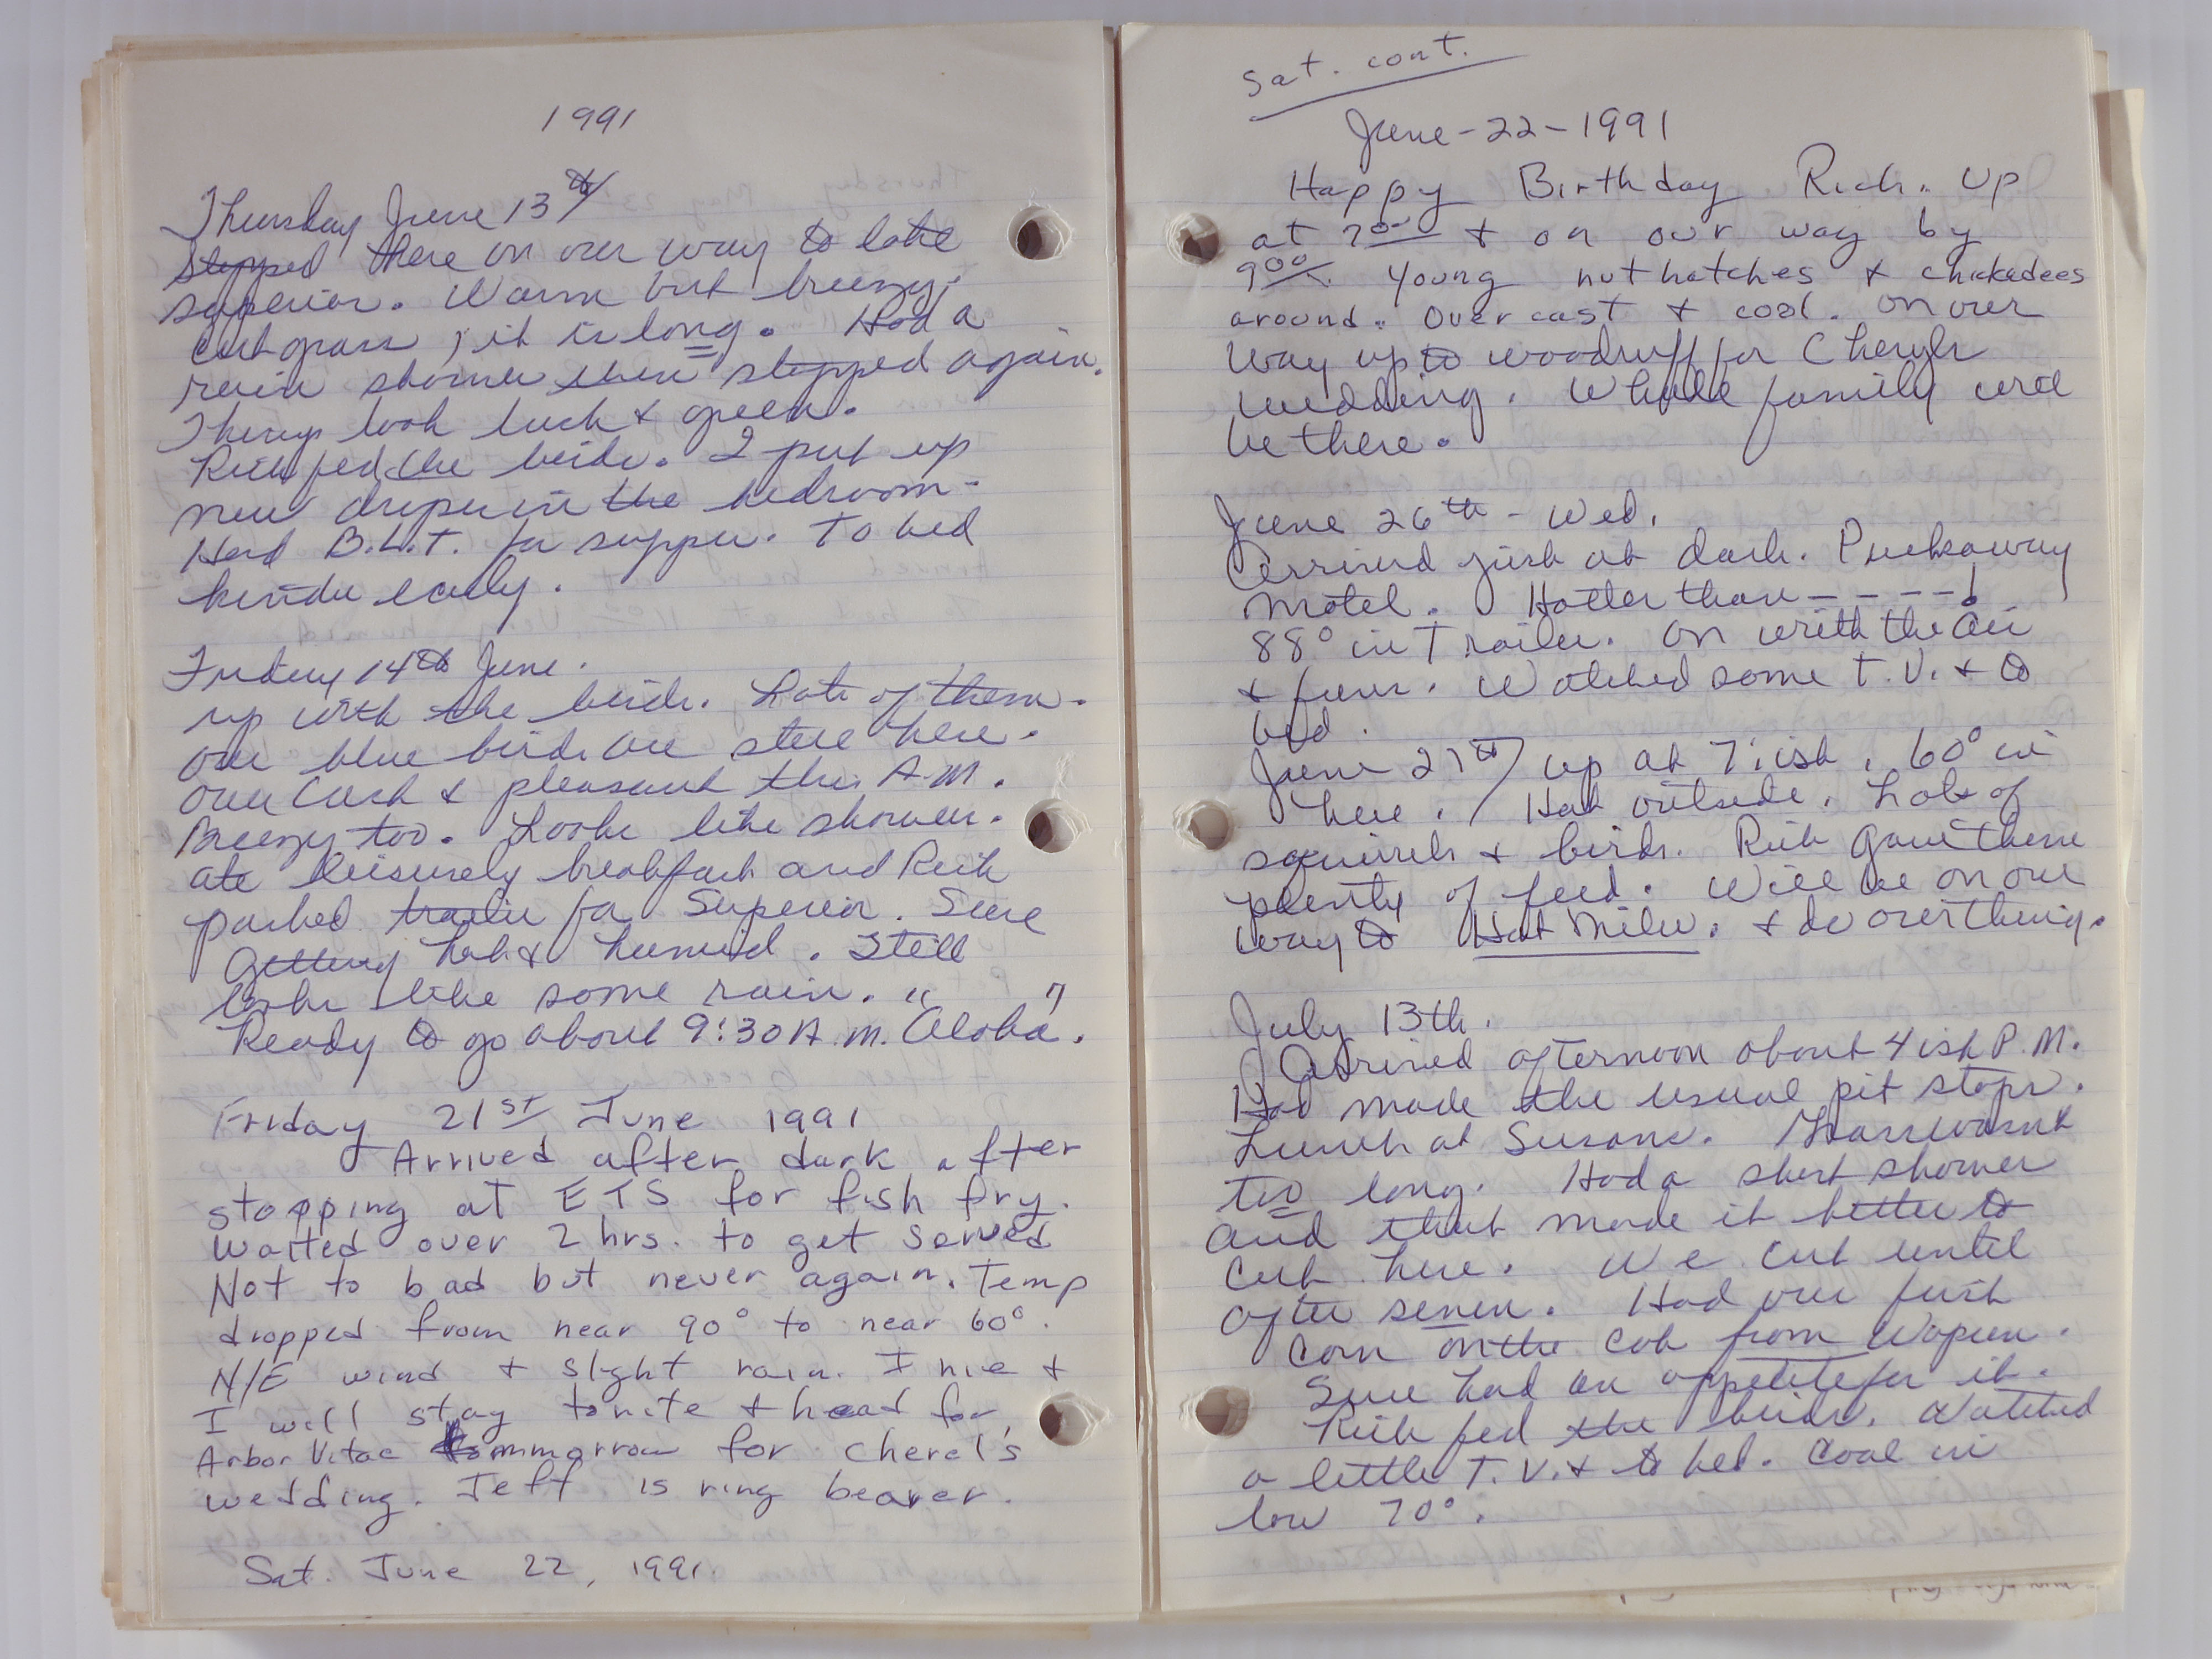 1991
Thursday June 13th
Stopped there on our way to lake
superior. Warm but breezy.
Cut grass, it is long. Had a
rain shower then stopped again.
Things look lush & green.
Rich fed the birds. I put up
new drapes in the bedroom.
Had B.L.T. for supper. To bed
kinda early.
Friday 14th June.
up with the birds. Lots of them.
our blue birds are still here.
over cast & pleasant this A.M.
Breezy too. Looks like showers.
ate leisurely breakfast and Rich
packed trailer for Superior. Sure
getting hot & humid. Still
looks like some rain.
Ready to go about 9:30 A.M. "Aloha".
Friday 21st June 1991
Arrived after dark after
stopping at ETS for fish fry.
Waited over 2 hrs. to get served
Not to bad but never again. Temp
dropped from near 90° to near 60°.
N/E wind & slight rain. I nie &
I will stay tonite & head for
Arbor Vitae tommorrow for Cheral's
wedding. Jeff is ring bearer.
Sat. June 22, 1991.
Sat. cont.
June-22-1991
Happy Birthday Rich. Up
at 7:00 & on our way by
9:00. Young nuthatches & chickadees
around. Overcast & cool. On our
way up to woodruff for Cheryls
wedding. Whole family will
be there.
June 26th - Wed.
Arrived just at dark. Puckaway
Motel. Hotter than - - - -!
88° in Trailer. On with the air
& fans. Watched some T.V. & to
bed.
June 27th up at 7:ish. 60° in
here. Hot outside. Lots of
squirrels & birds. Rich gave them
plenty of feed. Will be on our
way to Hot Milw. & do over thing.
July 13th.
Arrived afternoon about 4 ish P.M.
Had made the usual pit stops.
Lunch at Susans. Grass wasnt
too long. Had a short shower
and that made it better to
cut here. We cut until
after seven. Had our first
corn on the cob from Wapun.
Sure had an appetite for it.
Rich fed the birds. Watched
a little T.V. & to bed. Cool in
low 70°.